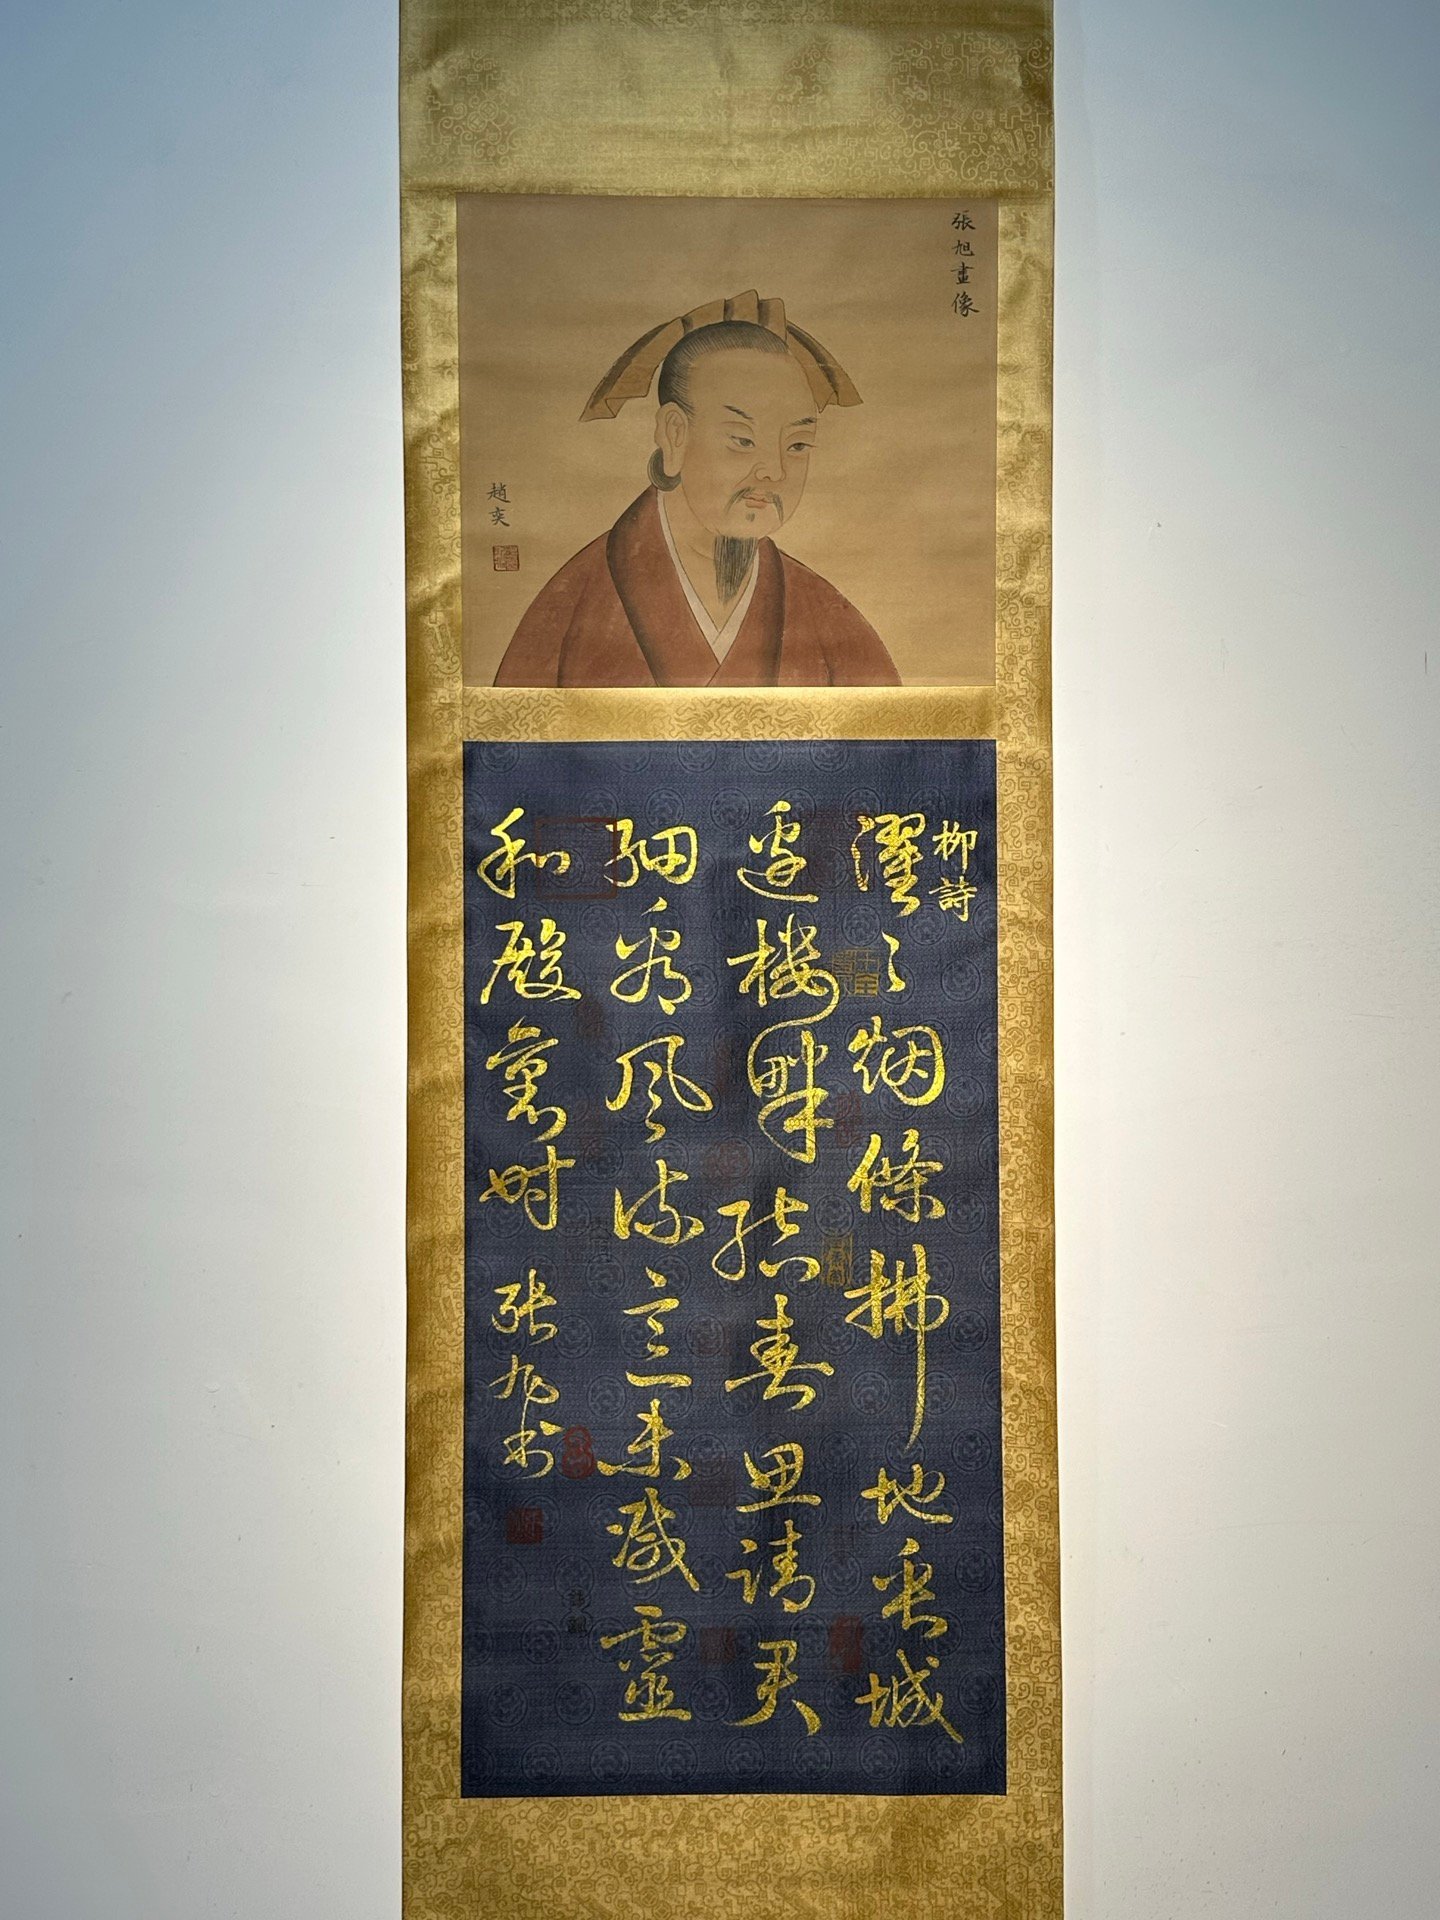 張旭畫像
趙奕
柳詩
濯〻烟條拂地垂城
邊樓畔結春思請君
細看風流意未減靈
和殿裏時
張旭書